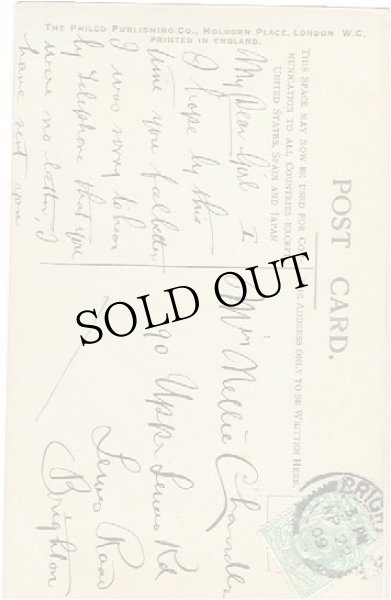 THE PHILCO PUBLISHING CO., HOLBORN PLACE, LONDON W.C.
PRINTED IN ENGLAND.
POST CARD.
THIS SPACE MAY NOW BE USED FOR
MUNICATION TO ALL COUNTRIES EXCEPT
UNITED STATES, SPAIN AND JAPAN
ADDRESS ONLY TO BE WRITTEN HERE
My Dear Girl I
I hope by this
time you feel better
I was sorry to hear
by Telephone that you
were no better, I
have sent you
SOLD OUT
Nellie Chandler
90 Upper Lewes Rd
Lewes Road
Brighton
BRIGH
AP 22
09